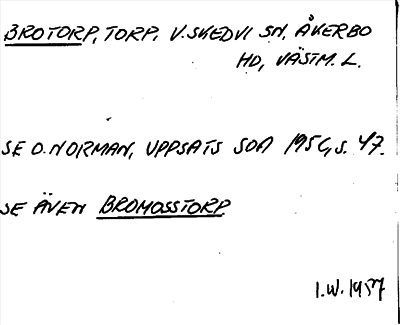 BROTORP, TORP, V. SKEDVI SN, ÅKERBO
HD, VÄSTM. L.
SE D. NORMAN, UPPSATS SOA 1954, S. 47.
SE ÄVEN BROMOSSTORP
I.W. 1957